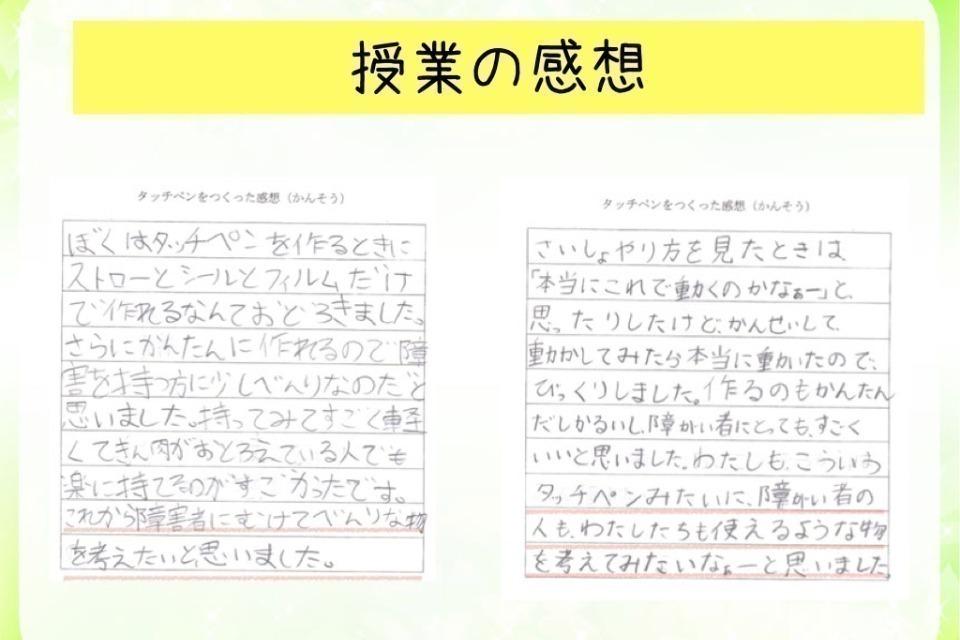 授業の感想
タッチペンをつくった感想（かんそう）
ぼくはタッチペンを作るときに
ストローとシールとフィルムだけ
で作れるなんておどろきました。
さらにかんたんに作れるので障
害を持つ方に少しべんりなのだと
思いました。持ってみてすごく軽
くてきん肉がおとろえている人でも
楽に持てそのがすごかったです。
これから障害者にむけてべんりな物
を考えたいと思いました。
タッチペンをつくった感想（かんそう）
さいしょやり方を見たときは
「本当にこれで動くのかなぁー」と、
思ったりしたけど、かんせいして、
動かしてみたら本当に動いたので、
びっくりしました。作るのもかんたん
だしかるいし、障がい者にとっても、すごく
いいと思いました。わたしも、こういう
タッチペンみたいに、障がい者の
人も、わたしたちも使えるような物
を考えてみたいなぁーと思いました。